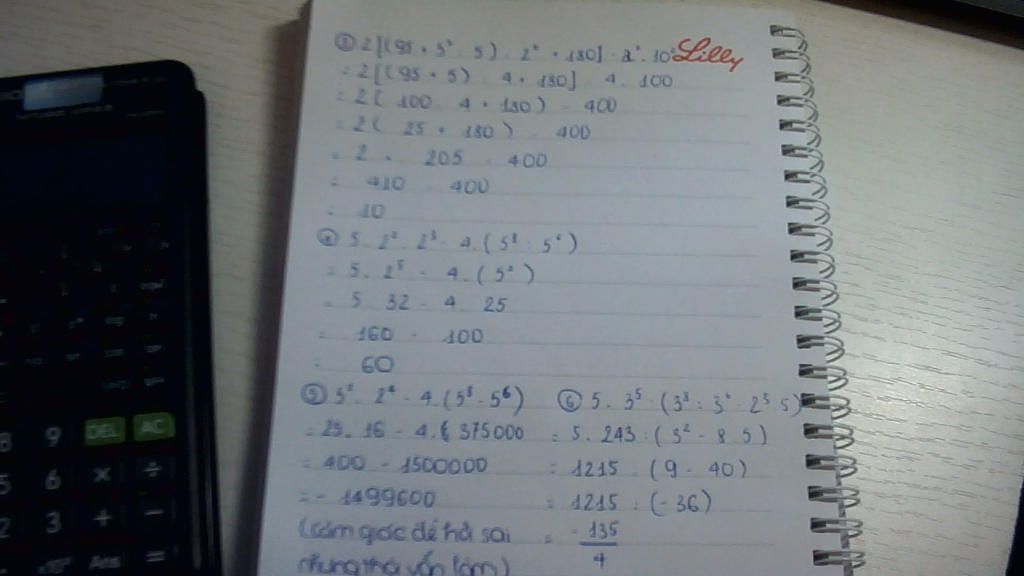 ③ 2[(95 + 5² : 5) : 2² + 180] - 2² . 10² Lilly
= 2[(95 + 5) : 4 + 180] - 4 . 100
= 2( 100 : 4 + 180) - 400
= 2( 25 + 180 ) - 400
= 2 . 205 - 400
= 410 - 400
= 10
④ 5 . 2² . 2³ - 4 . ( 5⁸ : 5⁶ )
= 5 . 2⁵ - 4 . ( 5² )
= 5 . 32 - 4 . 25
= 160 - 100
= 60
⑤ 5² . 2⁴ - 4 . (5⁸ - 5⁶)
= 25 . 16 - 4 . 375000
= 400 - 1500000
= - 1499600
(Cảm giác đề hơi sai
nhưng thôi vẫn làm)
⑥ 5 . 3⁵ : (3⁸ : 3⁶ - 2³ . 5)
= 5 . 243 : ( 3² - 8 . 5 )
= 1215 : (9 - 40)
= 1215 : (- 36)
= - 135
4
DEL AC
8 9
5 6 × ÷
2 3 + −
Ans =